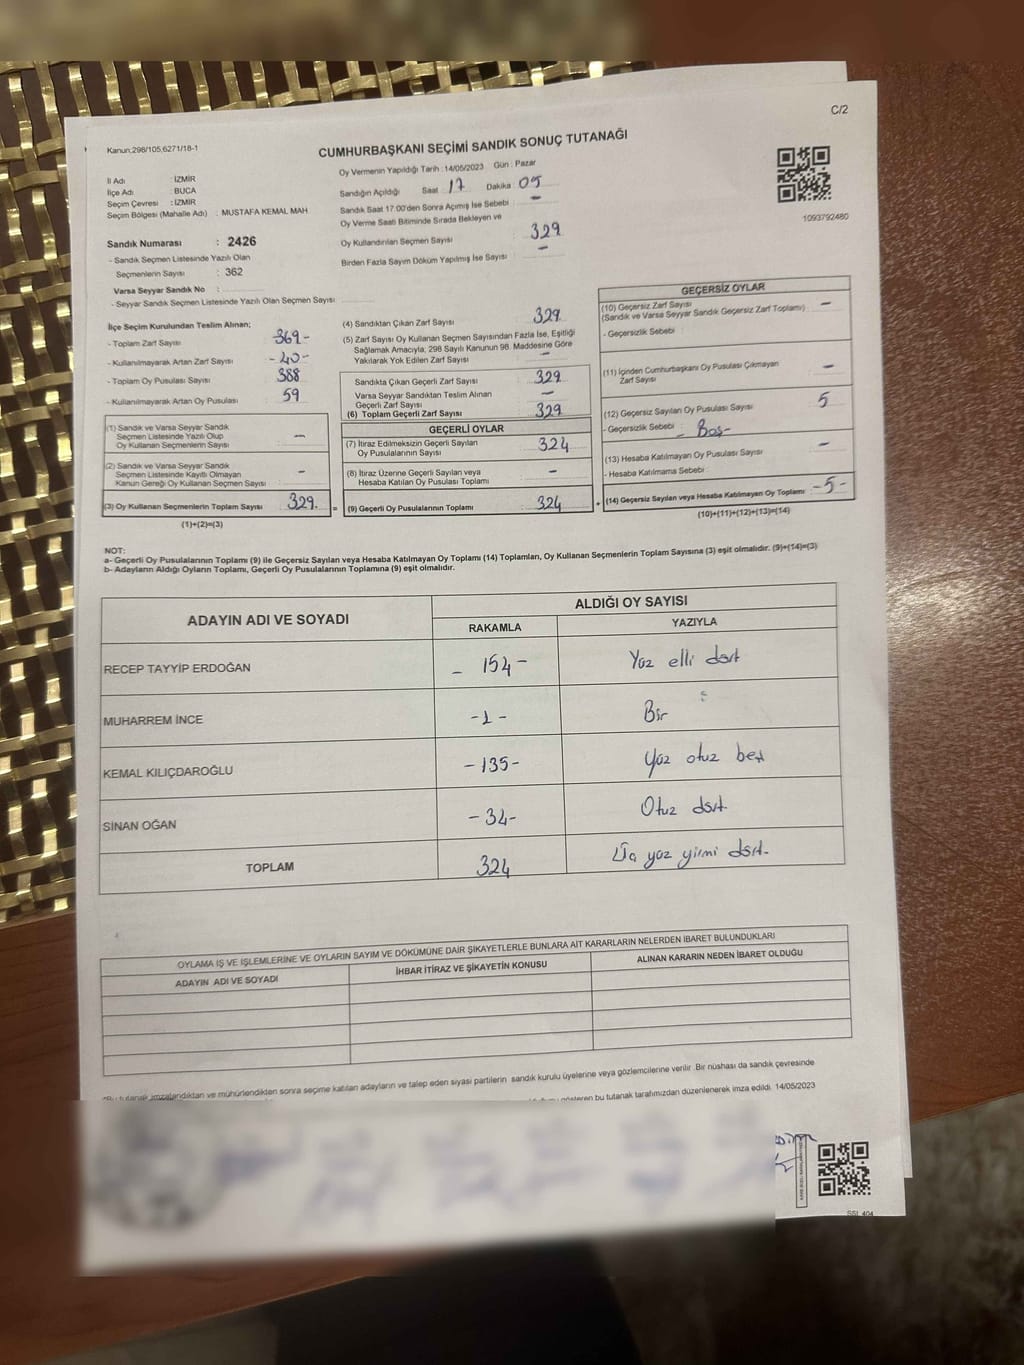 C/2
Kanun:298/105,6271/18-1
CUMHURBAŞKANI SEÇİMİ SANDIK SONUÇ TUTANAĞI
Oy Vermenin Yapıldığı Tarih : 14/05/2023 Gün : Pazar
İl Adı : İZMİR
İlçe Adı : BUCA
Seçim Çevresi : İZMİR
Seçim Bölgesi (Mahalle Adı) : MUSTAFA KEMAL MAH
Sandığın Açıldığı Saat 17 Dakika : 05
Sandık Saat 17:00'den Sonra Açımış İse Sebebi : -
Oy Verme Saati Bitiminde Sırada Bekleyen ve
Oy Kullandırılan Seçmen Sayısı : 329
Birden Fazla Sayım Döküm Yapılmış İse Sayısı : -
1093792480
Sandık Numarası : 2426
- Sandık Seçmen Listesinde Yazılı Olan
Seçmenlerin Sayısı : 362
Varsa Seyyar Sandık No :
- Seyyar Sandık Seçmen Listesinde Yazılı Olan Seçmen Sayısı
İlçe Seçim Kurulundan Teslim Alınan;
- Toplam Zarf Sayısı : 369-
- Kullanılmayarak Artan Zarf Sayısı : -40-
- Toplam Oy Pusulası Sayısı : 388
- Kullanılmayarak Artan Oy Pusulası : 59
(1) Sandık ve Varsa Seyyar Sandık
Seçmen Listesinde Yazılı Olup
Oy Kullanan Seçmenlerin Sayısı : -
(2) Sandık ve Varsa Seyyar Sandık
Seçmen Listesinde Kayıtlı Olmayan
Kanun Gereği Oy Kullanan Seçmen Sayısı : -
(3) Oy Kullanan Seçmenlerin Toplam Sayısı : 329.
(1)+(2)=(3)
(4) Sandıktan Çıkan Zarf Sayısı : 329
(5) Zarf Sayısı Oy Kullanan Seçmen Sayısından Fazla İse, Eşitliği
Sağlamak Amacıyla; 298 Sayılı Kanunun 98. Maddesine Göre
Yakılarak Yok Edilen Zarf Sayısı : -
Sandıkta Çıkan Geçerli Zarf Sayısı : 329
Varsa Seyyar Sandıktan Teslim Alınan
Geçerli Zarf Sayısı : -
(6) Toplam Geçerli Zarf Sayısı : 329
GEÇERLİ OYLAR
(7) İtiraz Edilmeksizin Geçerli Sayılan
Oy Pusulasının Sayısı : 324
(8) İtiraz Üzerine Geçerli Sayılan veya
Hesaba Katılan Oy Pusulası Toplamı : -
= (9) Geçerli Oy Pusulalarının Toplamı : 324 +
GEÇERSİZ OYLAR
(10) Geçersiz Zarf Sayısı : -
(Sandık ve Varsa Seyyar Sandık Geçersiz Zarf Toplamı)
- Geçersizlik Sebebi :
(11) İçinden Cumhurbaşkanı Oy Pusulası Çıkmayan
Zarf Sayısı : -
(12) Geçersiz Sayılan Oy Pusulası Sayısı : 5
- Geçersizlik Sebebi : - Boş-
(13) Hesaba Katılmayan Oy Pusulası Sayısı : -
- Hesaba Katılmama Sebebi :
(14) Geçersiz Sayılan veya Hesaba Katılmayan Oy Toplamı : -5-
(10)+(11)+(12)+(13)=(14)
NOT:
a- Geçerli Oy Pusulalarının Toplamı (9) ile Geçersiz Sayılan veya Hesaba Katılmayan Oy Toplamı (14) Toplamları, Oy Kullanan Seçmenlerin Toplam Sayısına (3) eşit olmalıdır. (9)+(14)=(3)
b- Adayların Aldığı Oyların Toplamı, Geçerli Oy Pusulalarının Toplamına (9) eşit olmalıdır.
ADAYIN ADI VE SOYADI ALDIĞI OY SAYISI
RAKAMLA YAZIYLA
RECEP TAYYİP ERDOĞAN - 154- Yüz elli dört
MUHARREM İNCE -1- Bir
KEMAL KILIÇDAROĞLU -135- Yüz otuz beş
SİNAN OĞAN -34- Otuz dört
TOPLAM 324 Üç yüz yirmi dört.
OYLAMA İŞ VE İŞLEMLERİNE VE OYLARIN SAYIM VE DÖKÜMÜNE DAİR ŞİKAYETLERLE BUNLARA AİT KARARLARIN NELERDEN İBARET BULUNDUKLARI
ADAYIN ADI VE SOYADI İHBAR İTİRAZ VE ŞİKAYETİN KONUSU ALINAN KARARIN NEDEN İBARET OLDUĞU
*Bu tutanak imzalandıktan ve mühürlendikten sonra seçime katılan adayların ve talep eden siyasi partilerin sandık kurulu üyelerine veya gözlemcilerine verilir .Bir nüshası da sandık çevresinde
gösteren bu tutanak tarafımızdan düzenlenerek imza edildi. 14/05/2023
SSL 404